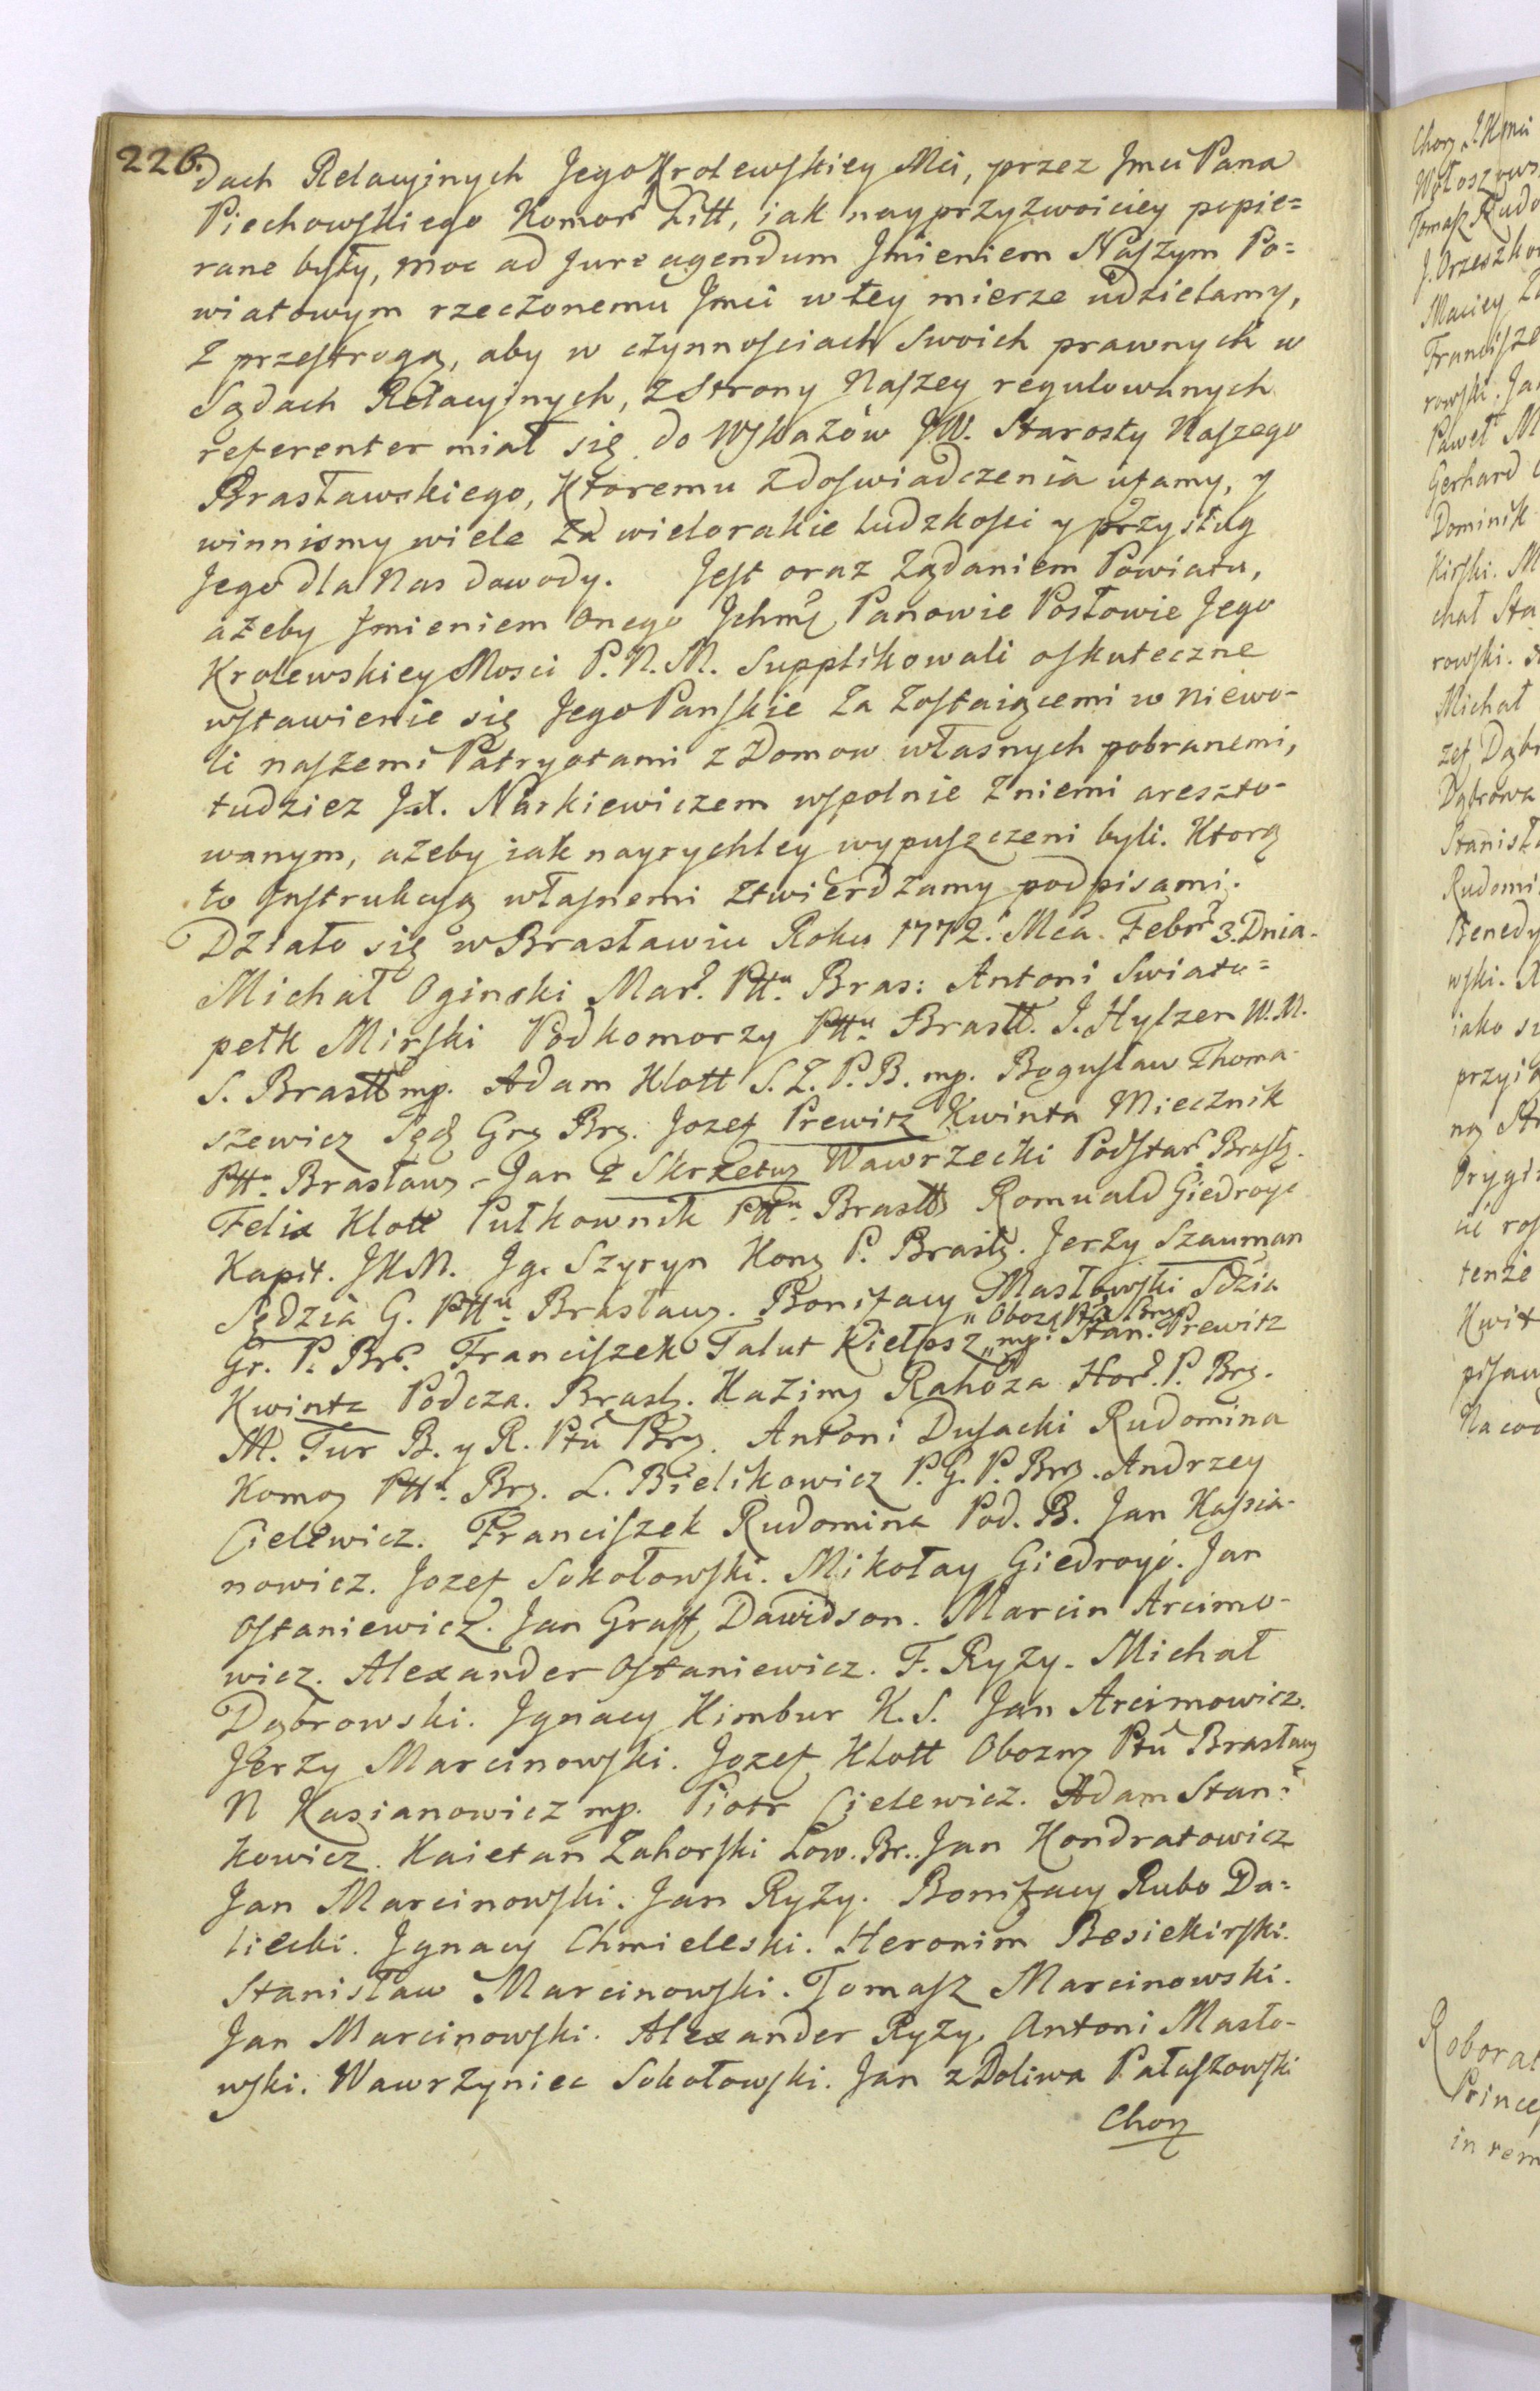 226.
dach Relacyinych Jego Krolewskiey Mci, przez Jmci Pana
Piechowskiego Komor Litt, iak nayprzyzwoiciey popie=
rane były, moc ad Jure agendum Jmieniem Naszym Po=
wiatowym rzeczonemu Jmci w tey mierze udzielamy,
Z przestrogą, aby w czynnosciach Swoich prawnych w
Sądach Relacyjnych, Z Strony Naszey regulowanych
referenter miał się do Wskazów JW. Starosty Naszego
Brasławskiego, Ktoremu Z doswiadczenia ufamy, y
winnismy wiele Za wielorakie Ludzkosci y przysług
Jego dla Nas dowody. Jest oraz Ządaniem Powiatu,
ażeby Jmieniem Onego Jchmę Panowie Posłowie Jego
Krolewskiey Mosci P. N. M. Supplikowali o skuteczne
wstawienie się Jego Panskie Za Zostaiącemi w Niewo-
li naszemi Patryotami z Domow własnych pobranemi,
tudziez Jx. Narkiewiczem wspolnie Z niemi areszto-
wanym, ażeby iak nayrychley wypuszczeni byli. Ktorą
to Jnstrukcyą własnemi Ztwierdzamy podpisami.
Działo się w Brasławiu Roku 1772. Mca. Febr 3. Dnia.
Michał Oginski Mar. Pttu Bras: Antoni Swiato=
pełk Mirski Podkomorzy Pttu Brastt. J. Hylzen W. M.
S. Brastt mp. Adam Klott S. Z. P. B. mp. Bogusław Thoma-
szewicz Sędz Grz Brz. Jozef Prewitz Kwinta Miecznik
Pttu Brasławz. Jan Z Skrzetuz Wawrzecki Podstar Brasłz.
Felix Klott Pułkownik Pttu Brastt Romuald Giedroyć
Kapit. JKM. Jg. Szyryn Konz P. Brasłz. Jerzy Szauman
Sędzia G. Pttu Brasławz. Bonifacy Masłowski Sdzia
Gr. P. Br. Franciszek Talut Kiełpsz „Oboz Ptu Brz„ mp. Stan. Prewitz
Kwinta Podcza. Brasłz. Kazimz Rahoza Hor. P. Brz.
M. Tur B. y R. Ptu Brz. Antoni Dusacki Rudomina
Komoz Pttu Brz. L. Bielikowicz P. G. P. Brz. Andrzey
Cielewicz. Franciszek Rudomina Pod. B. Jan Kassia-
nowicz. Jozef Sokołowski. Mikołay Giedroyć. Jan
Ostaniewicz. Jan Graff Dawidson. Marcin Arcimo-
wicz. Alexander Ostaniewicz. F. Ryzy. Michał
Dąbrowski. Jgnacy Kimbur K. S. Jan Arcimowicz.
Jerzy Marcinowski. Jozef Klott Obozny Ptu Brasławz
N Kasianowicz mp. Piotr Cielewicz. Adam Stani
kowicz. Kaietan Zahorski Łow. Br. Jan Kondratowicz
Jan Marcinowski. Jan Ryzy. Bonifacy Rubo Da=
liecki. Jgnacy Chmieleski. Heronim Besiekirski.
Stanisław Marcinowski. Tomasz Marcinowski.
Jan Marcinowski. Alexander Ryzy. Antoni Masło-
wski. Wawrzyniec Sokołowski. Jan z Doliwa Pałaszowski
Chorz